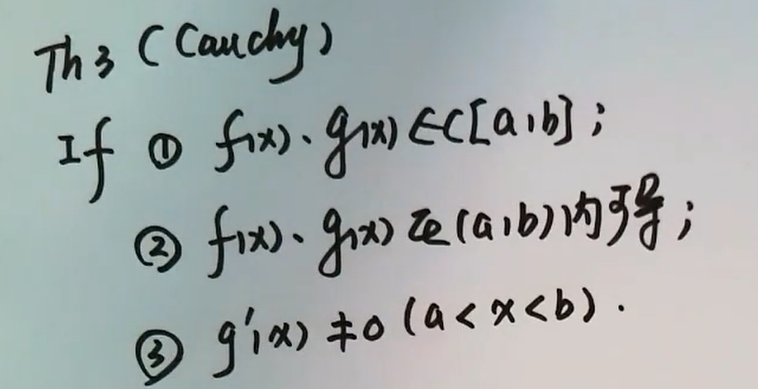 Th 3 (Cauchy)
If ① f(x)、g(x)∈C[a,b];
② f(x)、g(x)在(a,b)内可导;
③ g'(x)≠0 (a<x<b).